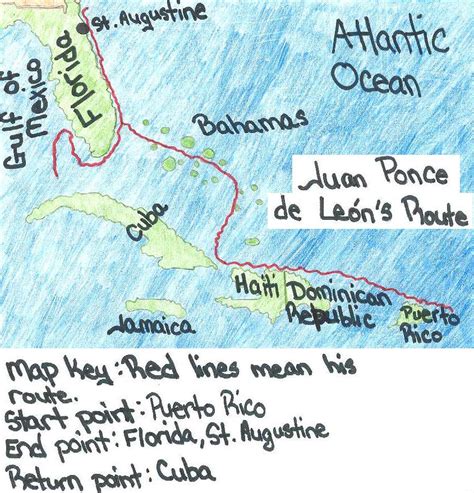 St. Augustine
Atlantic
Ocean
Florida
Gulf of
Mexico
Bahamas
Juan Ponce
de León's Route
Cuba
Haiti
Dominican
Republic
Puerto
Rico
Jamaica
Map Key: Red lines mean his
route.
Start point: Puerto Rico
End point: Florida, St. Augustine
Return point: Cuba